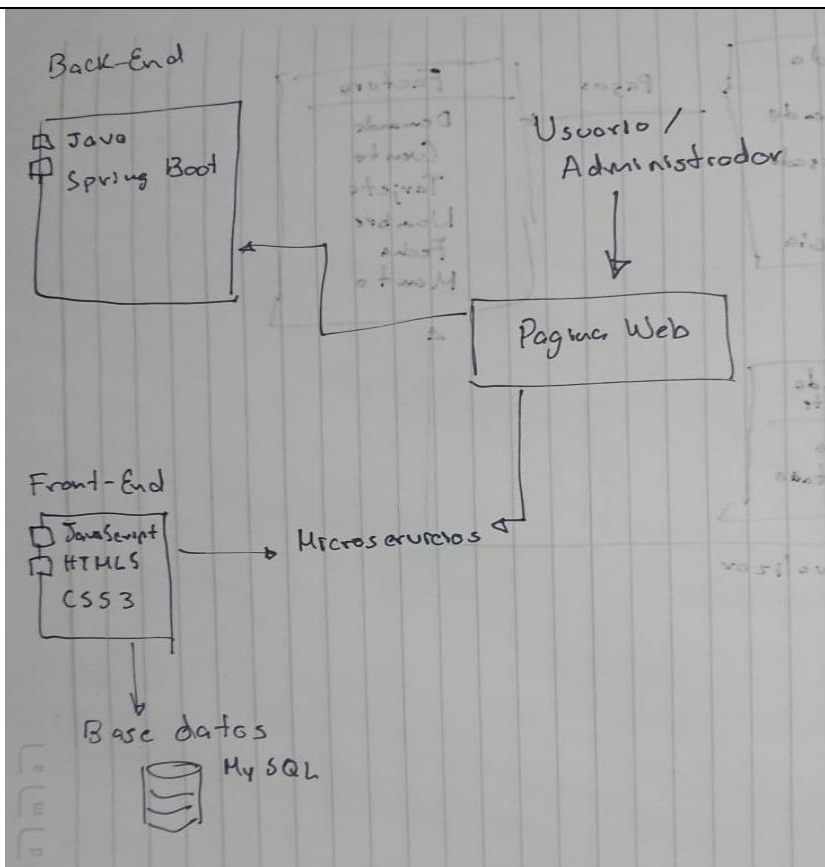 Back-End
Java
Spring Boot
Usuario /
Administrador
Pagina Web
Front-End
JavaScript
HTML5
CSS3
Microservicios
Base datos
My SQL